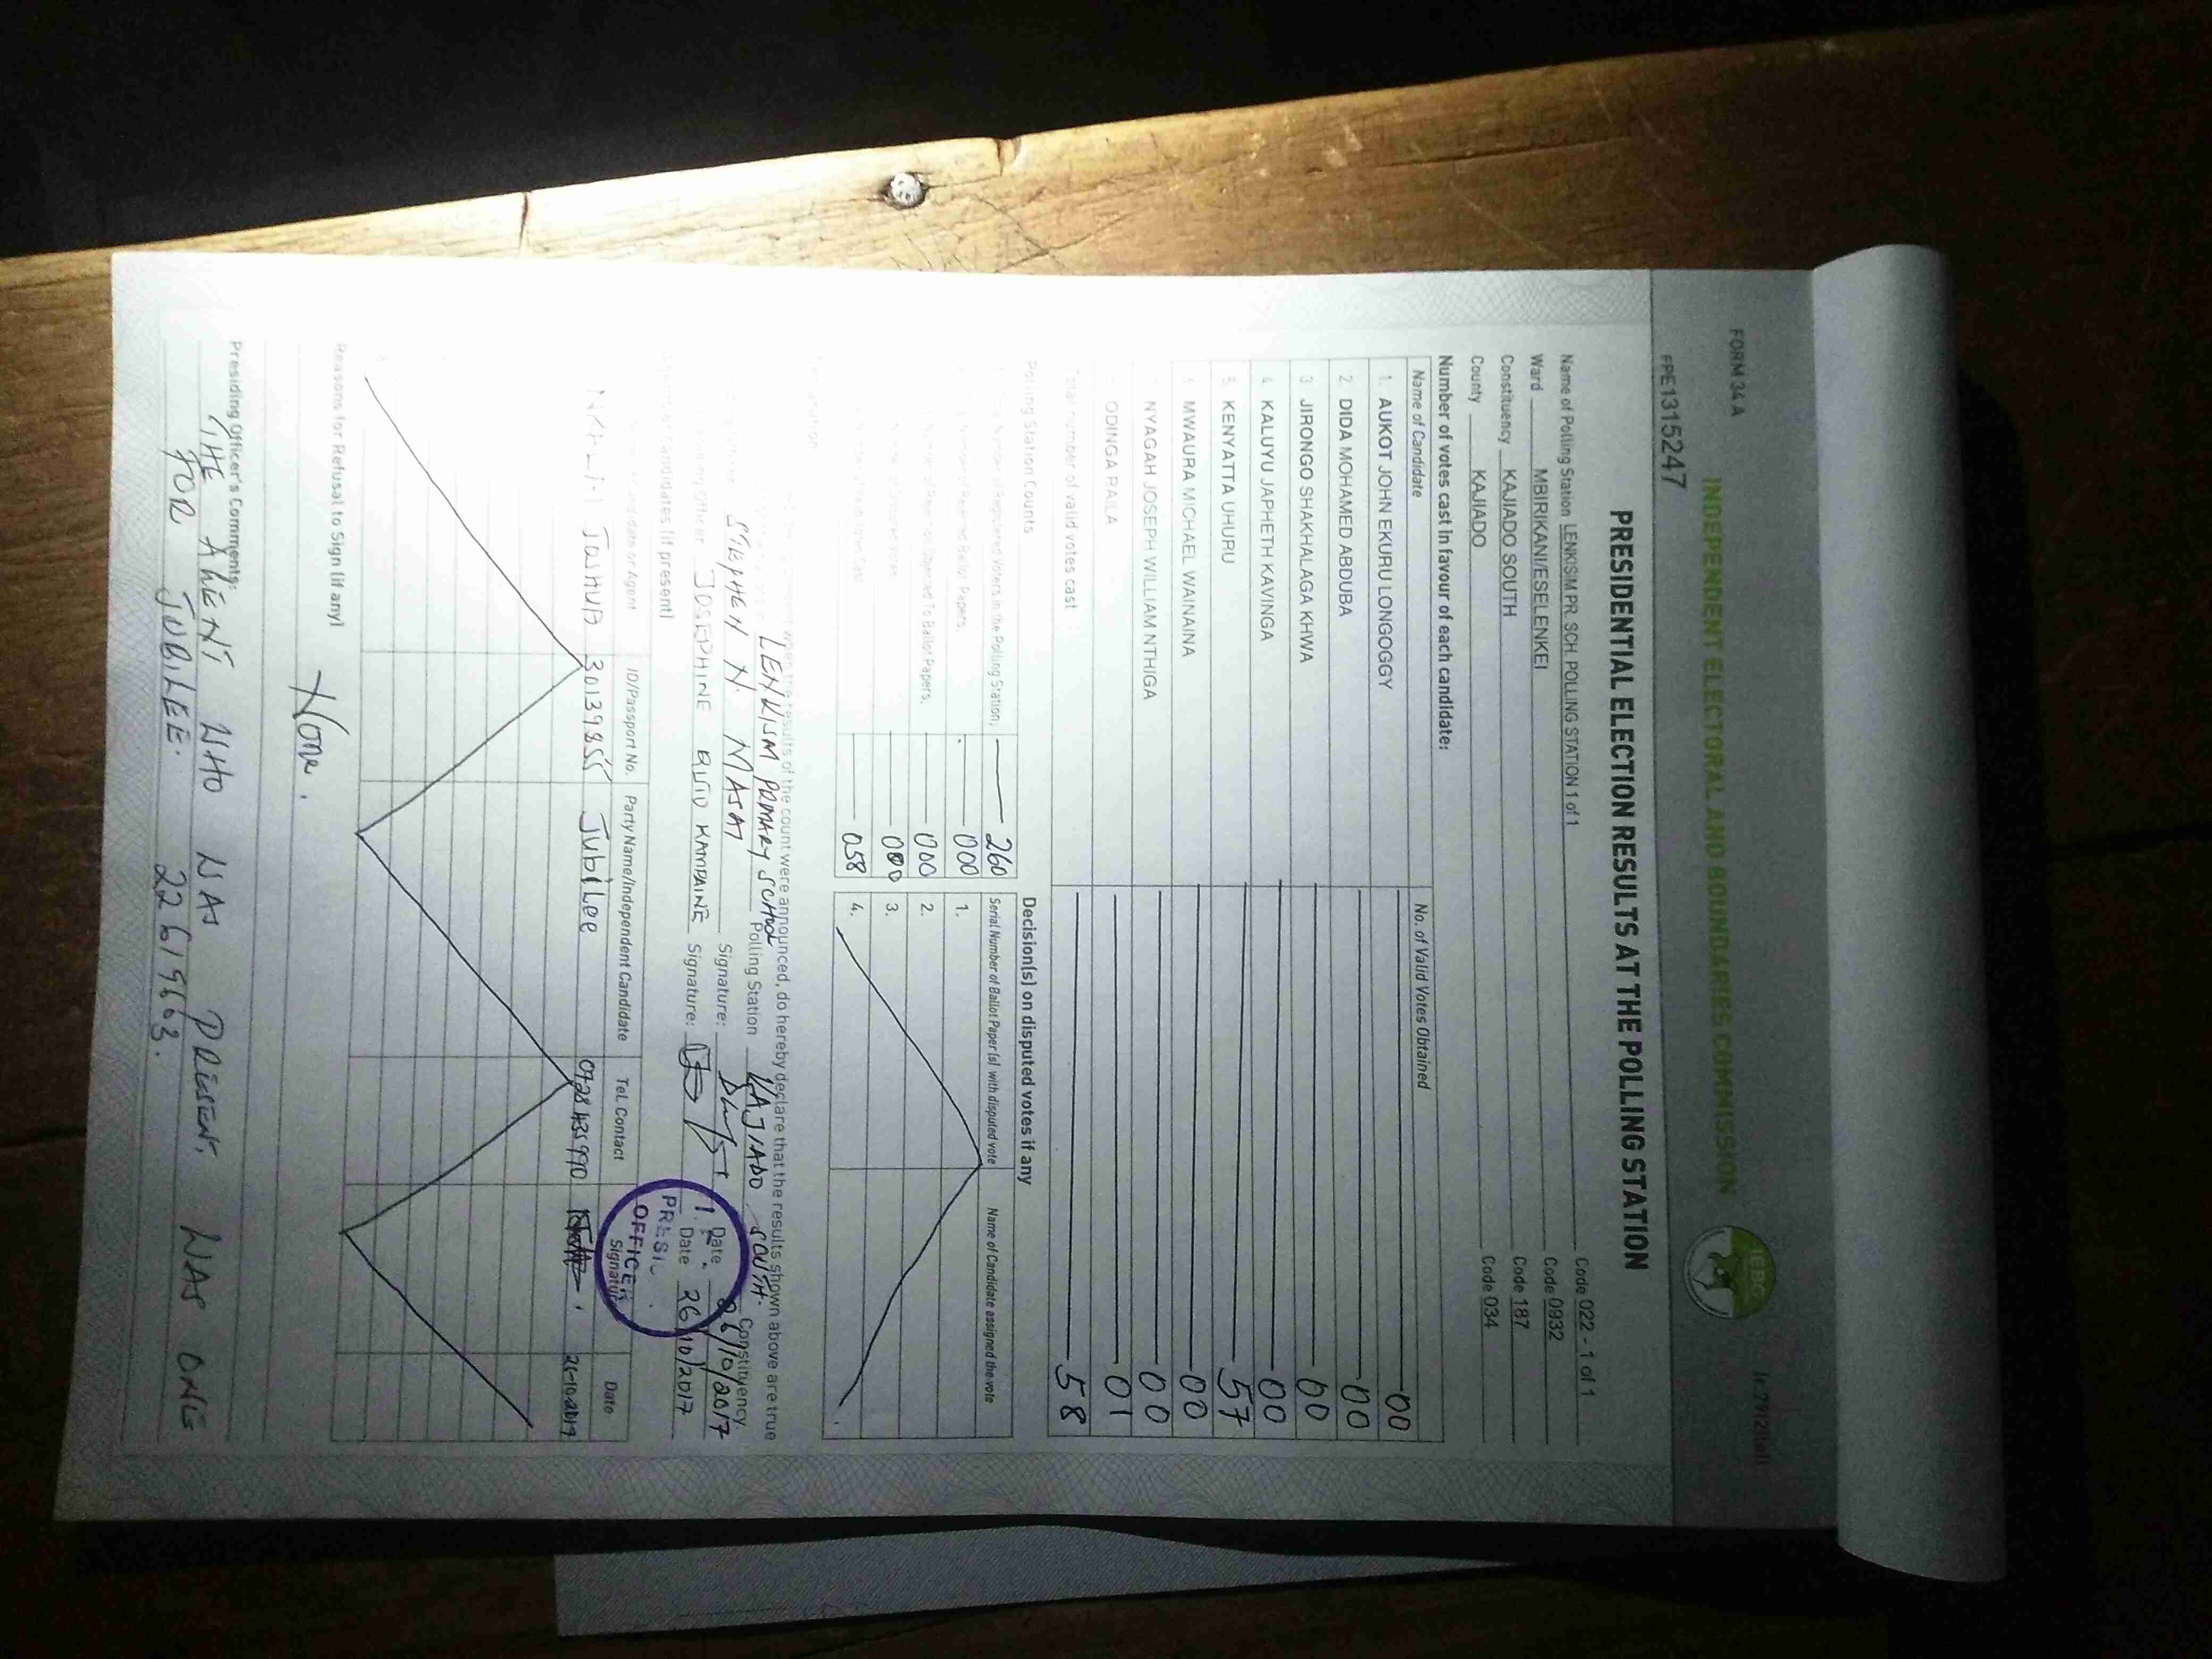 FORM 34 A
INDEPENDENT ELECTORAL AND BOUNDARIES COMMISSION
IEBC
FPE1315247
PRESIDENTIAL ELECTION RESULTS AT THE POLLING STATION
Name of Polling Station LENKISIM PR. SCH. POLLING STATION 1 of 1 Code 022 - 1 of 1
Ward MBIRIKANI/ESELENKEI Code 0932
Constituency KAJIADO SOUTH Code 187
County KAJIADO Code 034
Number of votes cast in favour of each candidate:
Name of Candidate No. of Valid Votes Obtained
1. AUKOT JOHN EKURU LONGOGGY 00
2. DIDA MOHAMED ABDUBA 00
3. JIRONGO SHAKHALAGA KHWA 00
4. KALUYU JAPHETH KAVINGA 00
5. KENYATTA UHURU 57
MWAURA MICHAEL WAINAINA 00
NYAGAH JOSEPH WILLIAM NTHIGA 00
ODINGA RAILA 01
Total number of valid votes cast 58
Polling Station Counts
Decision(s) on disputed votes if any
Registered Voters in the Polling Station; 260
Ballot Papers; 000
Objected To Ballot Papers; 000
000
058
Serial Number of Ballot Paper(s) with disputed vote Name of Candidate assigned the vote
1.
2.
3.
4.
when the results of the count were announced, do hereby declare that the results shown above are true
LENKISM PRIMARY SCHOOL Polling Station KAJIADO SOUTH. Constituency
STEPHEN N. MASAI Signature: Date 26/10/2017
Officer JOSEPHINE KAMPAINE Signature: Date 26/10/2017
Candidates (if present)
Candidate or Agent ID/Passport No. Party Name/Independent Candidate Tel. Contact Signature Date
JoshuA 30139855 JubiLee 26-10-2017
Reasons for Refusal to Sign (if any)
None.
Presiding Officer's Comments:
THE AGENT WHO WAS PRESENT, WAS ONE
FOR JUBILEE. 22619663.